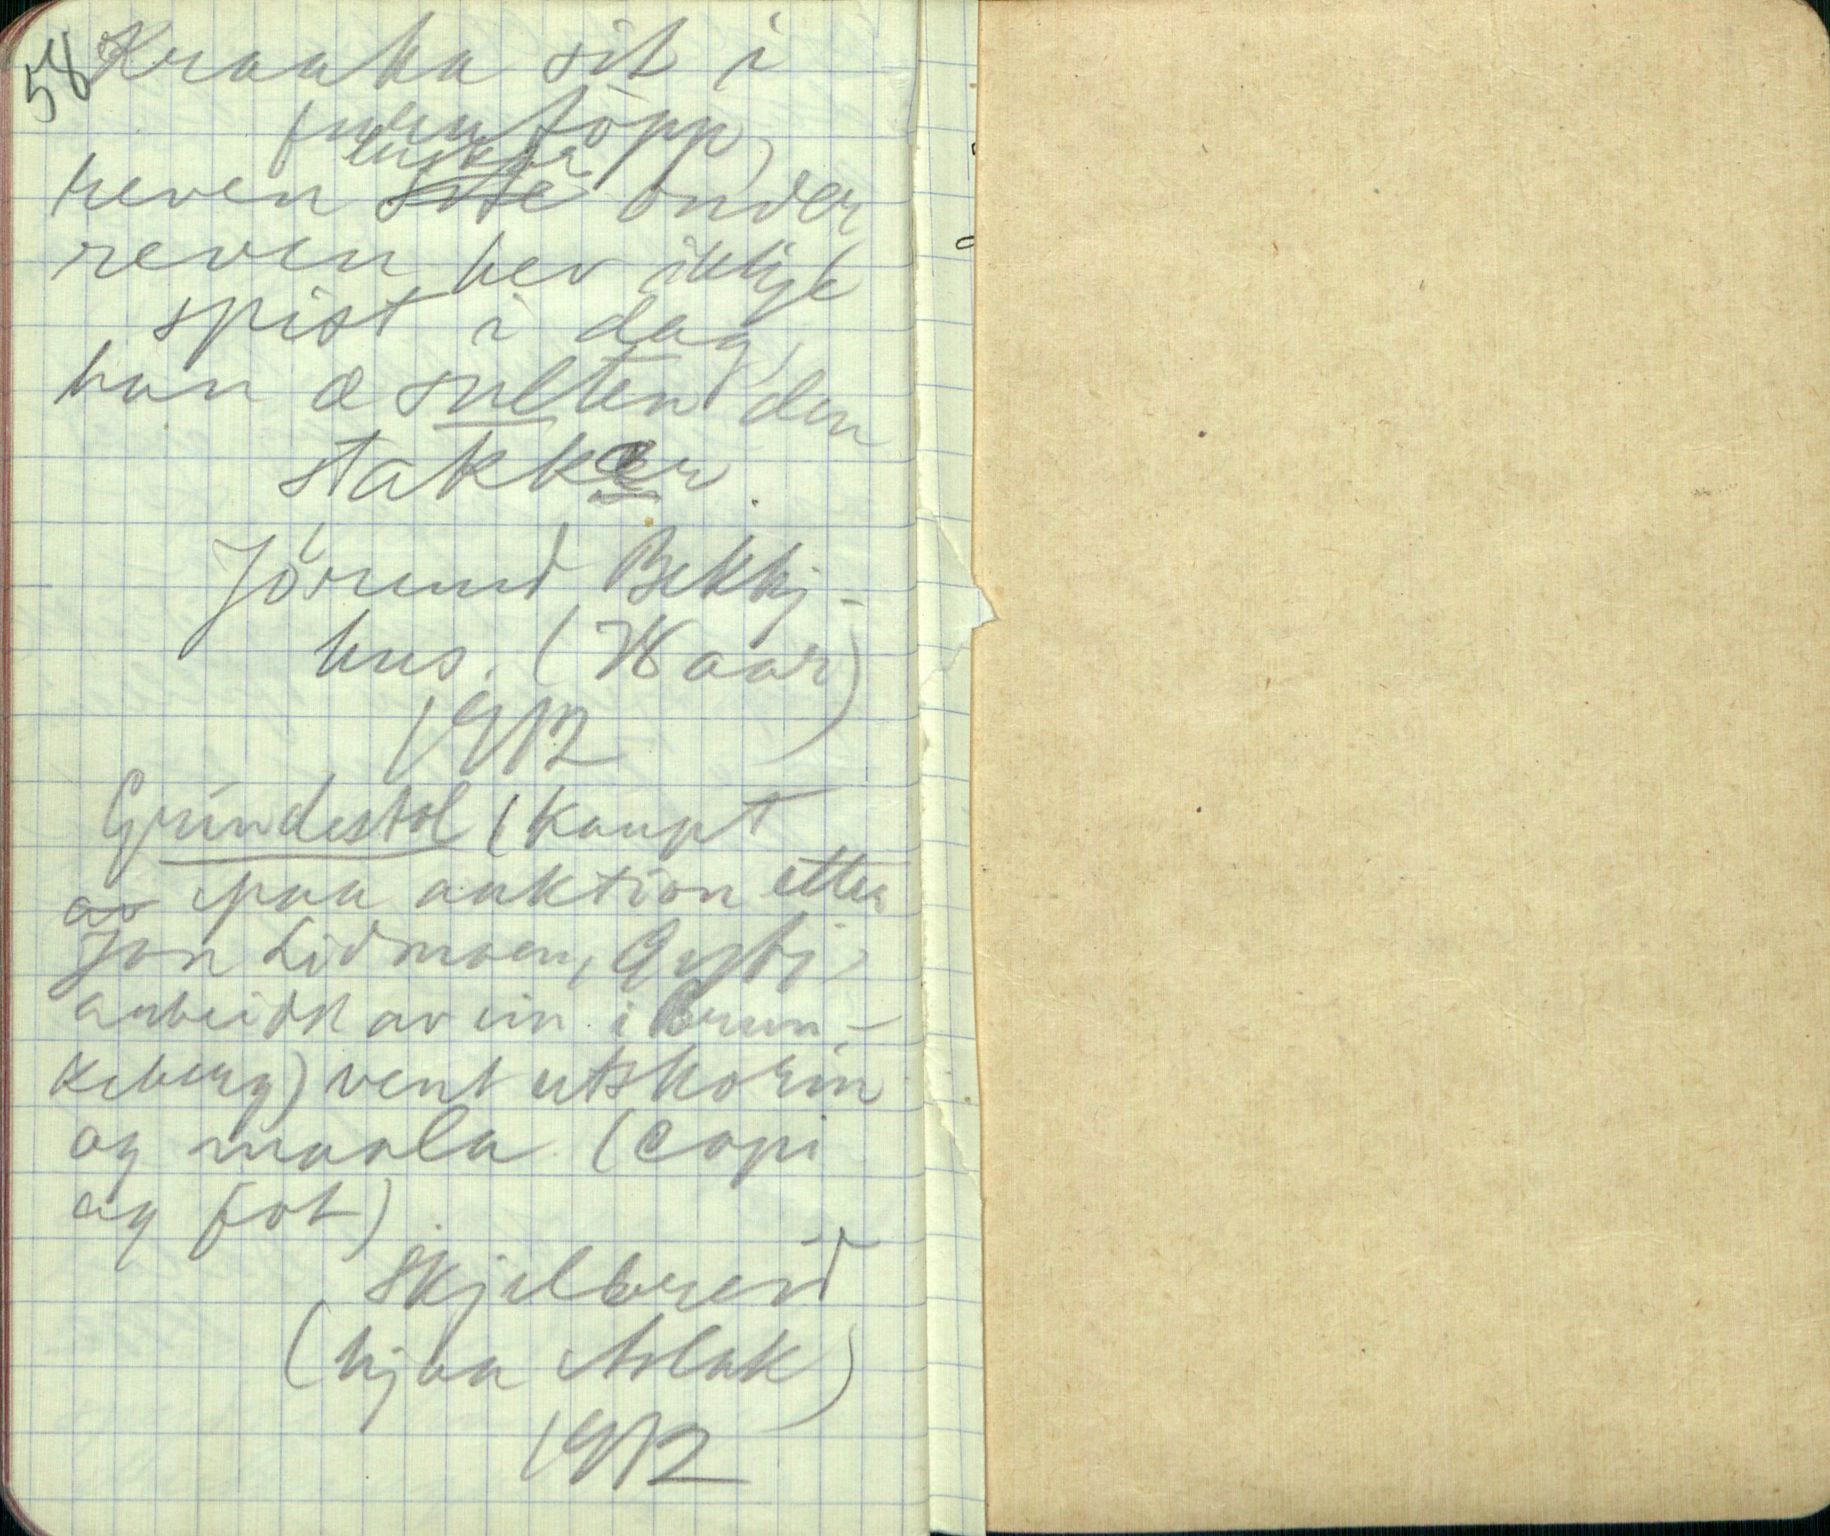 58
Kraaka sit i
furutöpp,
reven luskar onder
reven hev ikkje
spist i dag,
han æ sulten den
stakker.
Jörund Bekkj-
hus. (Haar)
1912
Grindestol (kaupt
av paa auktion etter
Jon Lidmoen,
arbeidt av ein i Brun-
keberg) vent utskorin
og maala (copi
og fot)
Skjelbreid
(hjaa Aslak)
1912